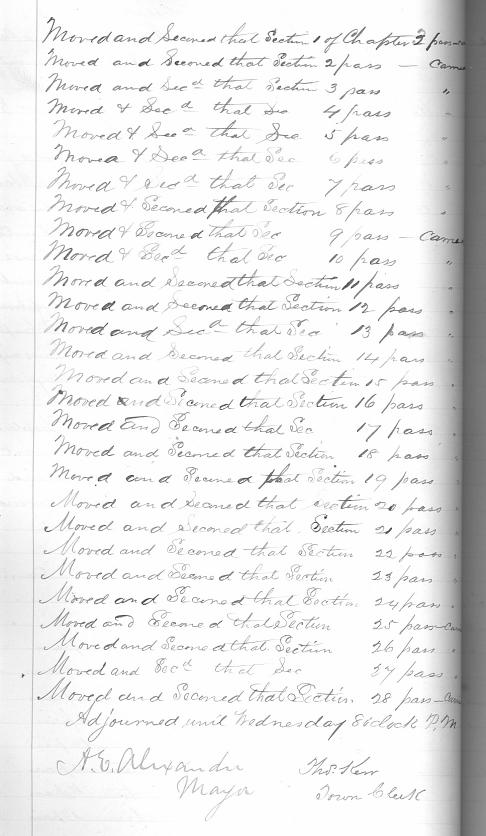 Moved and Seconed that Section 1 of Chapter 2 pass
Moved and Seconed that Section 2 pass — Came
Moved and Secd that Section 3 pass "
Moved & Secd that Sec 4 pass "
Moved & Secd that Sec 5 pass "
Moved & Secd that Sec 6 pass "
Moved & Secd that Sec 7 pass "
Moved & Seconed that Section 8 pass "
Moved & Seconed that Sec 9 pass — Came
Moved & Secd that Sec 10 pass "
Moved and Seconed that Section 11 pass
Moved and Seconed that Section 12 pass "
Moved and Secd that Sec 13 pass "
Moved and Seconed that Section 14 pass "
Moved and Seconed that Section 15 pass "
Moved and Seconed that Section 16 pass "
Moved and Seconed that Sec 17 pass "
Moved and Seconed that Section 18 pass "
Moved and Seconed that Section 19 pass "
Moved and Seconed that Section 20 pass "
Moved and Seconed that Section 21 pass "
Moved and Seconed that Section 22 pass "
Moved and Seconed that Section 23 pass "
Moved and Seconed that Section 24 pass "
Moved and Seconed that Section 25 pass — Came
Moved and Seconed that Section 26 pass "
Moved and Secd that Sec 27 pass "
Moved and Seconed that Section 28 pass — Came
Adjourned until Wednesday 8 oclock P.M
A.E. Alexander Thos. Kerr
Mayor Town Clerk